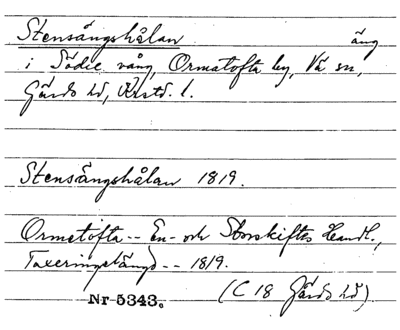 Stensängshålan äng
i Södie vång, Ormatofta by, Vä sn,
Gärds hd, Krstd. l.
Stensångshålan 1819.
Ormatofta -- En- och Storskiftes Handl.,
Taxeringslängd -- 1819.
Nr 5343. (C 18 Gärds hd)